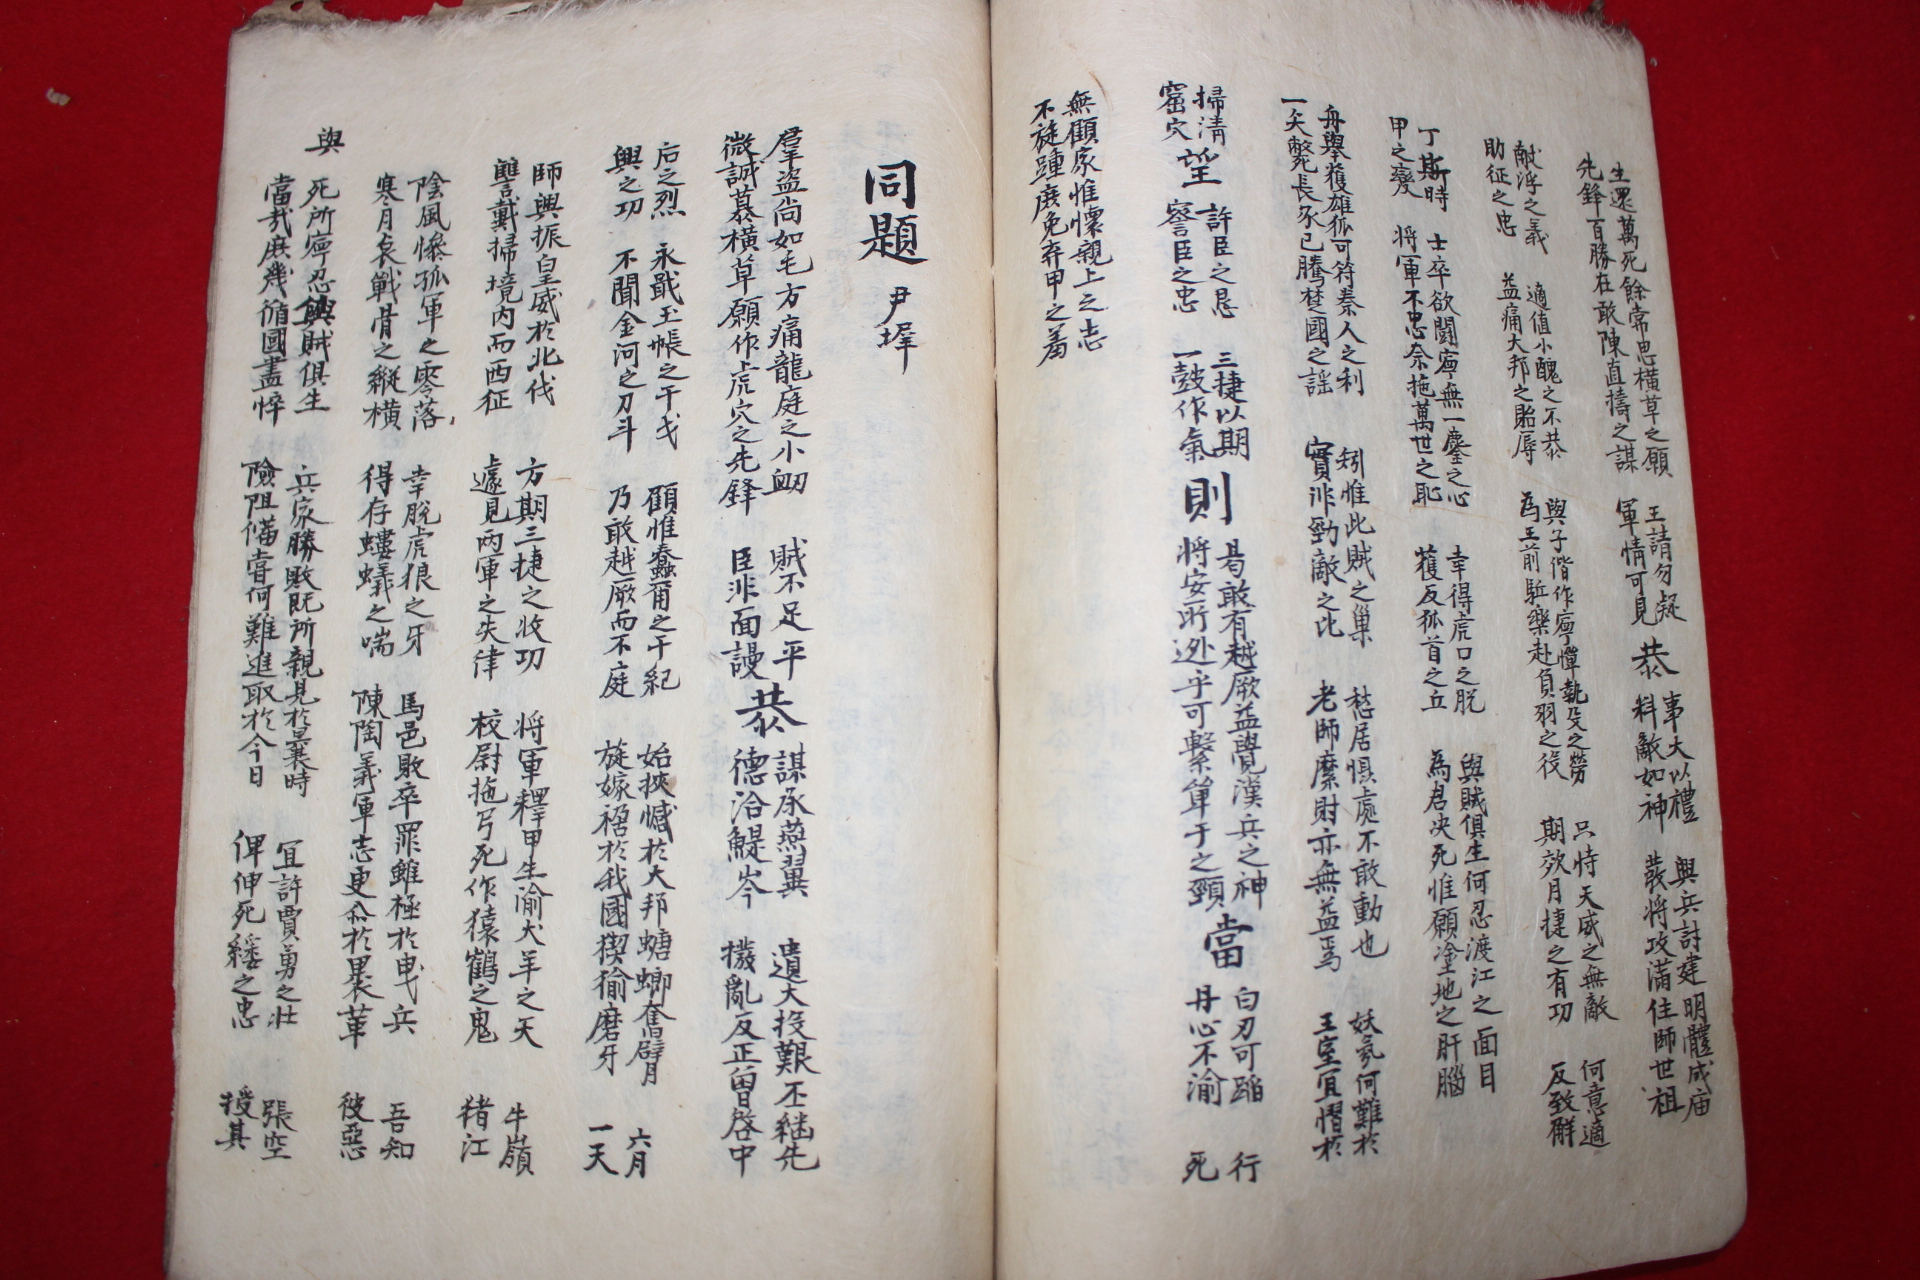 生還萬死餘常思橫草之願 王請勿疑 恭 事大以禮 與兵討建明體成庙
先鋒百勝在敢陳直擣之謀 軍情可見 料敵如神 蕟将攻滿住師世祖
献浮之義 適值小醜之不恭 與子偕作寧憚執殳之勞 只恃天威之無敵 何意適
助征之忠 益痛大邦之貽辱 為王前駈樂赴負羽之役 期效月捷之有功 反致觧
丁斯時 士卒欲闘寧無一鏖之心 幸得虎口之脱 與賊俱生何忍渡江之面目
甲之變 将軍不忠奈拖萬世之恥 獲反狐首之丘 為君决死惟願塗地之肝腦
舟舉獲雄狐可符秦人之利 矧惟此賊之巢 愁居惧處不敢動也 妖氛何難於
一矢斃長豕已騰楚國之謠 實非勁敵之比 老師縻財亦無益焉 王室宜慴於
掃淸 望 許臣之恳 三捷以期 則 曷敢有越厥益覺漢兵之神 當 白刃可蹈 行
窟穴 察臣之忠 一鼓作氣 将安所逃乎可繫單于之頸 丹心不渝 死
無顧家惟懷親上之志
不旋踵庶免弃甲之羞
同題 尹墀
羣盗尚如毛方痛龍庭之小衂 賊不足平 恭 謀承燕翼 遺大投艱丕継先
微誠慕橫草願作虎穴之先鋒 臣非面謾 德洽鯷岑 撥亂反正曽啓中
后之烈 永戢玉帳之干戈 顧惟蠢甭之干紀 始挾憾於大邦螗螂奮臂 六月
興之功 不聞金河之刀斗 乃敢越厥而不庭 旋嫁禍於我國猰貐磨牙 一天
師興振皇威於北伐 方期三捷之收功 将軍釋甲生渝犬羊之天 牛嶺
讐戴掃境内而西征 遽見兩軍之失律 校尉拖弓死作猿鶴之鬼 猪江
陰風慘孤軍之零落 幸脫虎狼之牙 馬邑敗卒罪雖極於曳兵 吾知
寒月哀戰骨之縱橫 得存螻蟻之喘 陳陶義軍志更𠫵於裹革 彼惡
與 死所寧忍與賊俱生 兵家勝敗既所親見於曩時 宜許賈勇之壯 張空
當㢤庶幾循國盡悴 險阻備嘗何難進取於今日 俾伸死綏之忠 授其